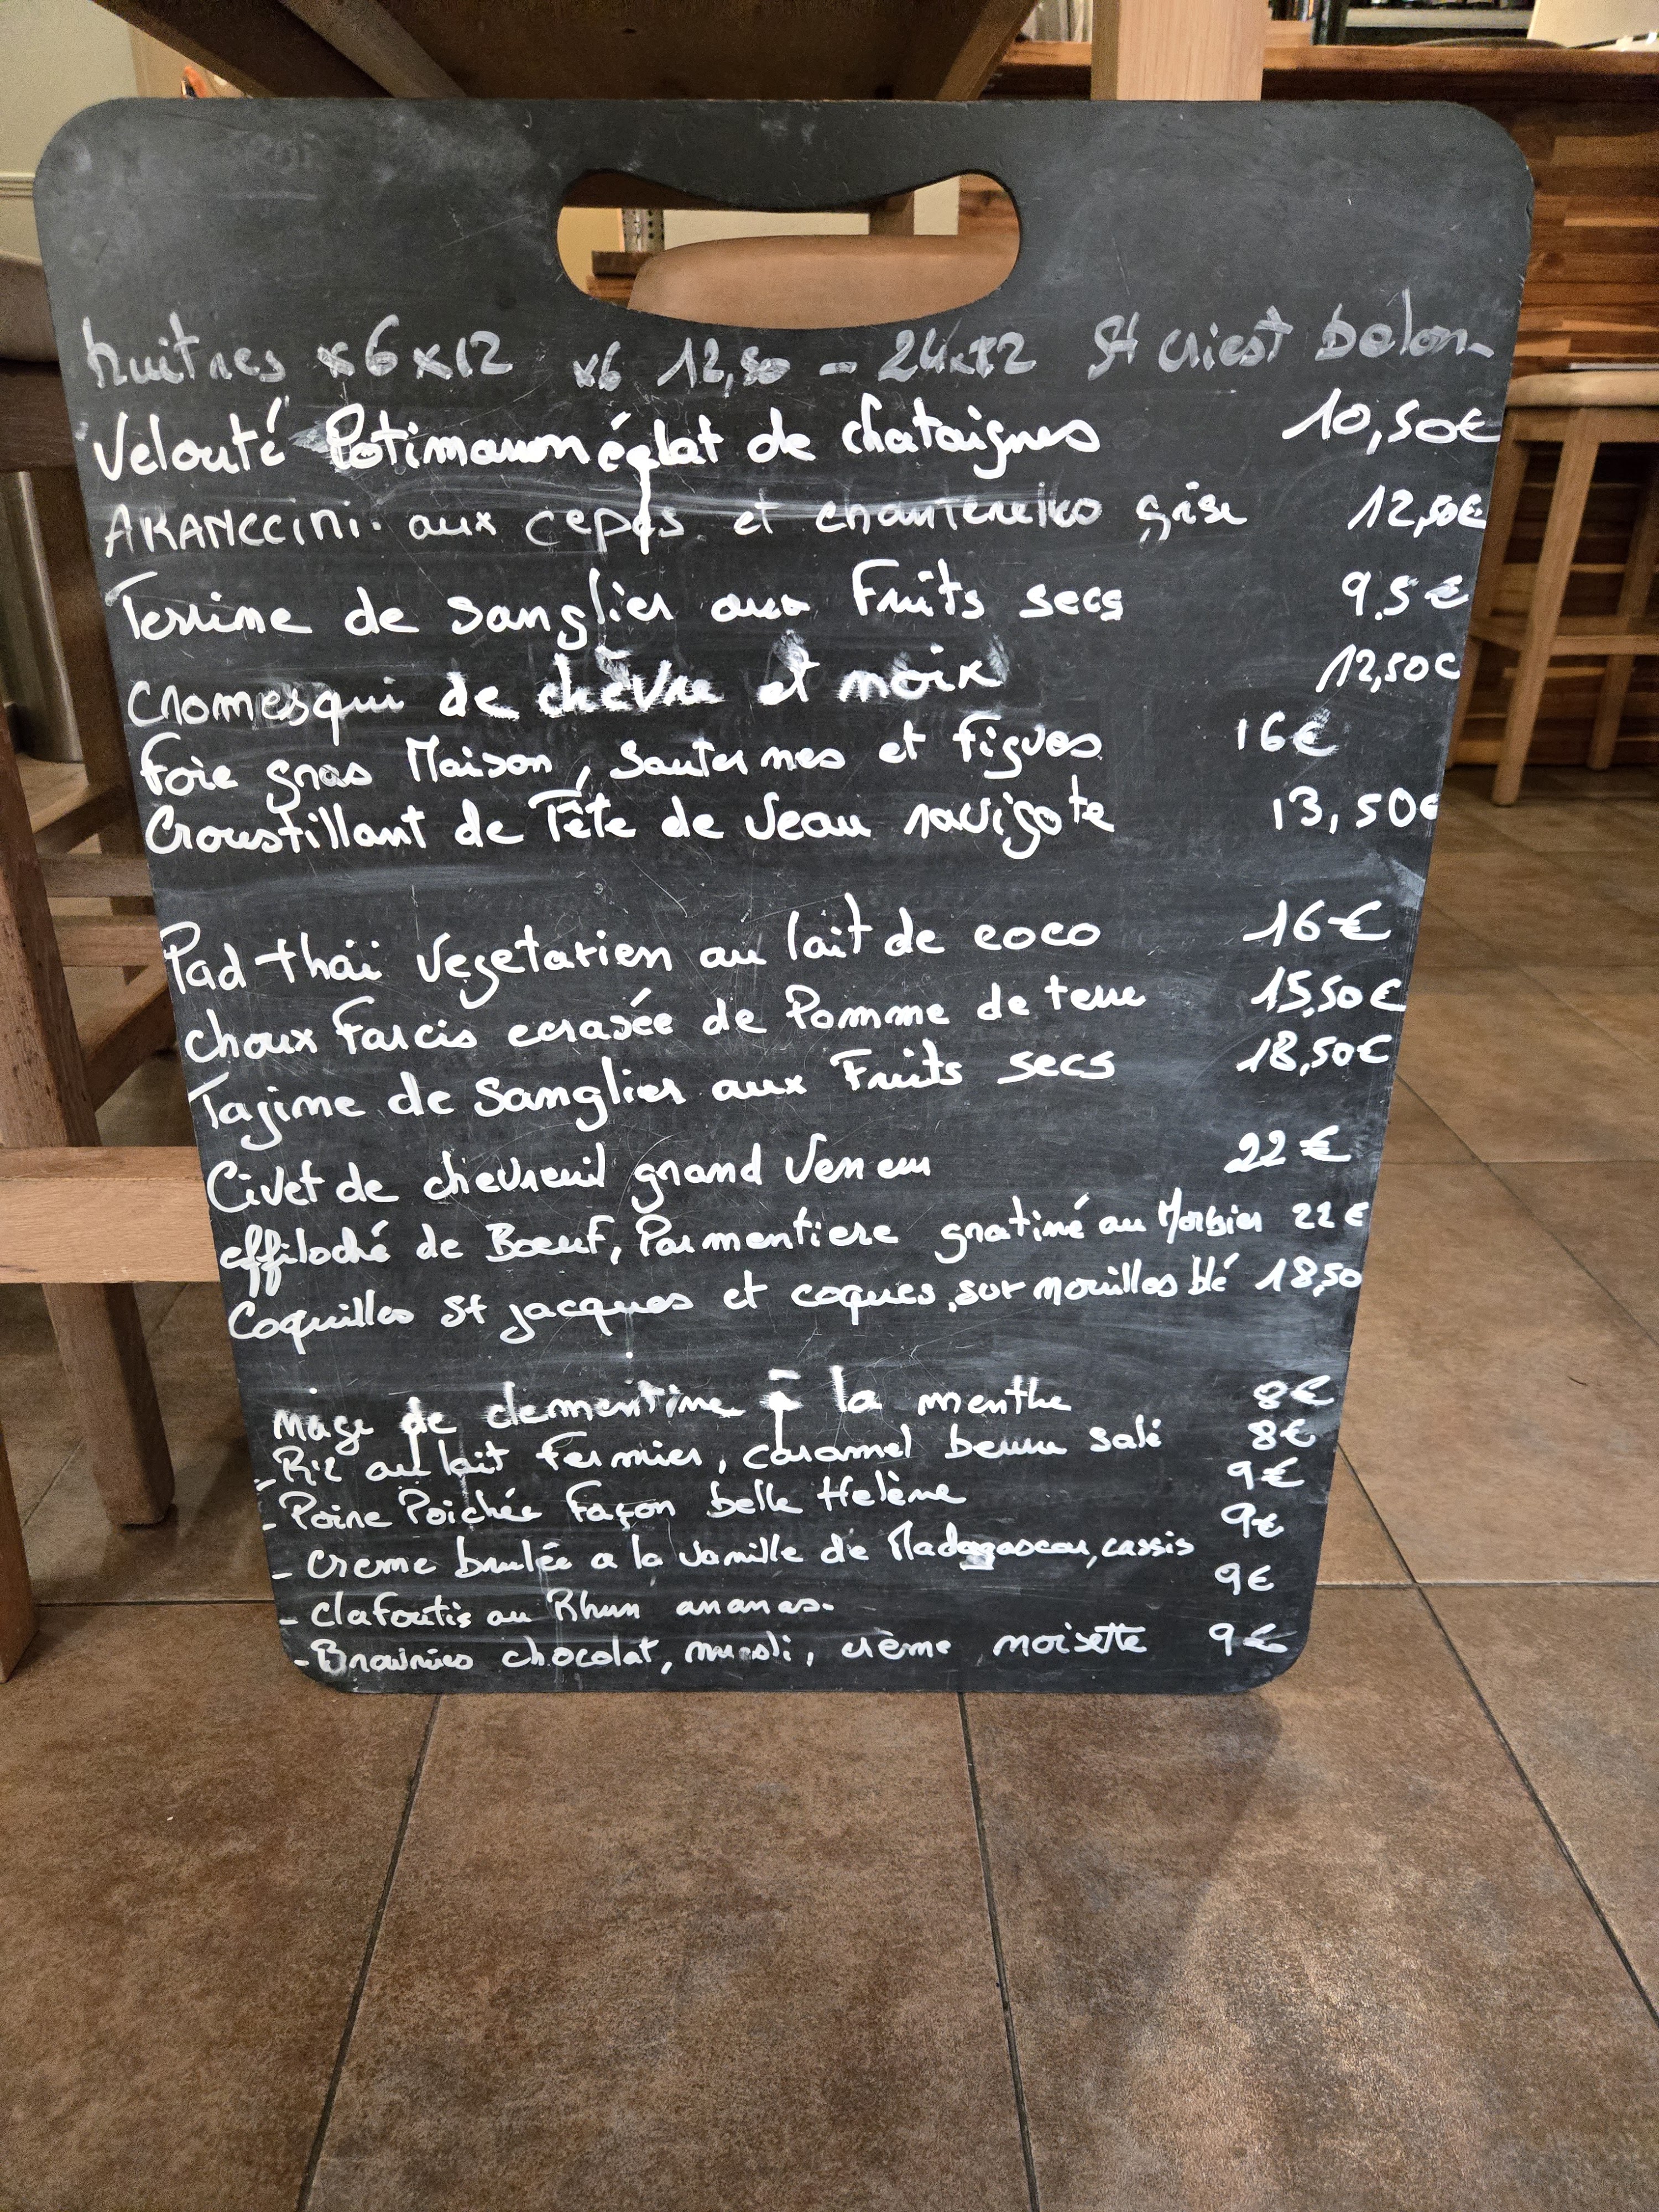 huitres x6 x12 x6 12,50 - 24 x12 St Criest belon
Velouté Potimarron éclat de chataignes 10,50€
ARANCCINI. aux cepes et chanterelles grise 12,50€
Terrine de sanglier aux Fruits secs 9.5€
Cromesqui de chèvre et noix 12,50€
foie gras Maison, Sauternes et figues 16€
Croustillant de Tête de veau ravigote 13,50€
Pad-thaï Vegetarien au lait de coco 16€
choux Farcis ecrasée de Pomme de terre 15,50€
Tajine de Sanglier aux Fruits secs 18,50€
Civet de chevreuil grand Veneur 22€
effiloché de Bœuf, Parmentiere gratiné au Morbier 22€
Coquilles St jacques et coques, sur nouilles blé 18,50
de clementine à la menthe 8€
- Riz au lait fermier, caramel beurre salé 8€
- Poire Poichée Façon belle Helène 9€
- creme brulée a la vanille de Madagascar, cassis 9€
- clafoutis au Rhum ananas. 9€
- Brownies chocolat, muesli, crème noisette 9€